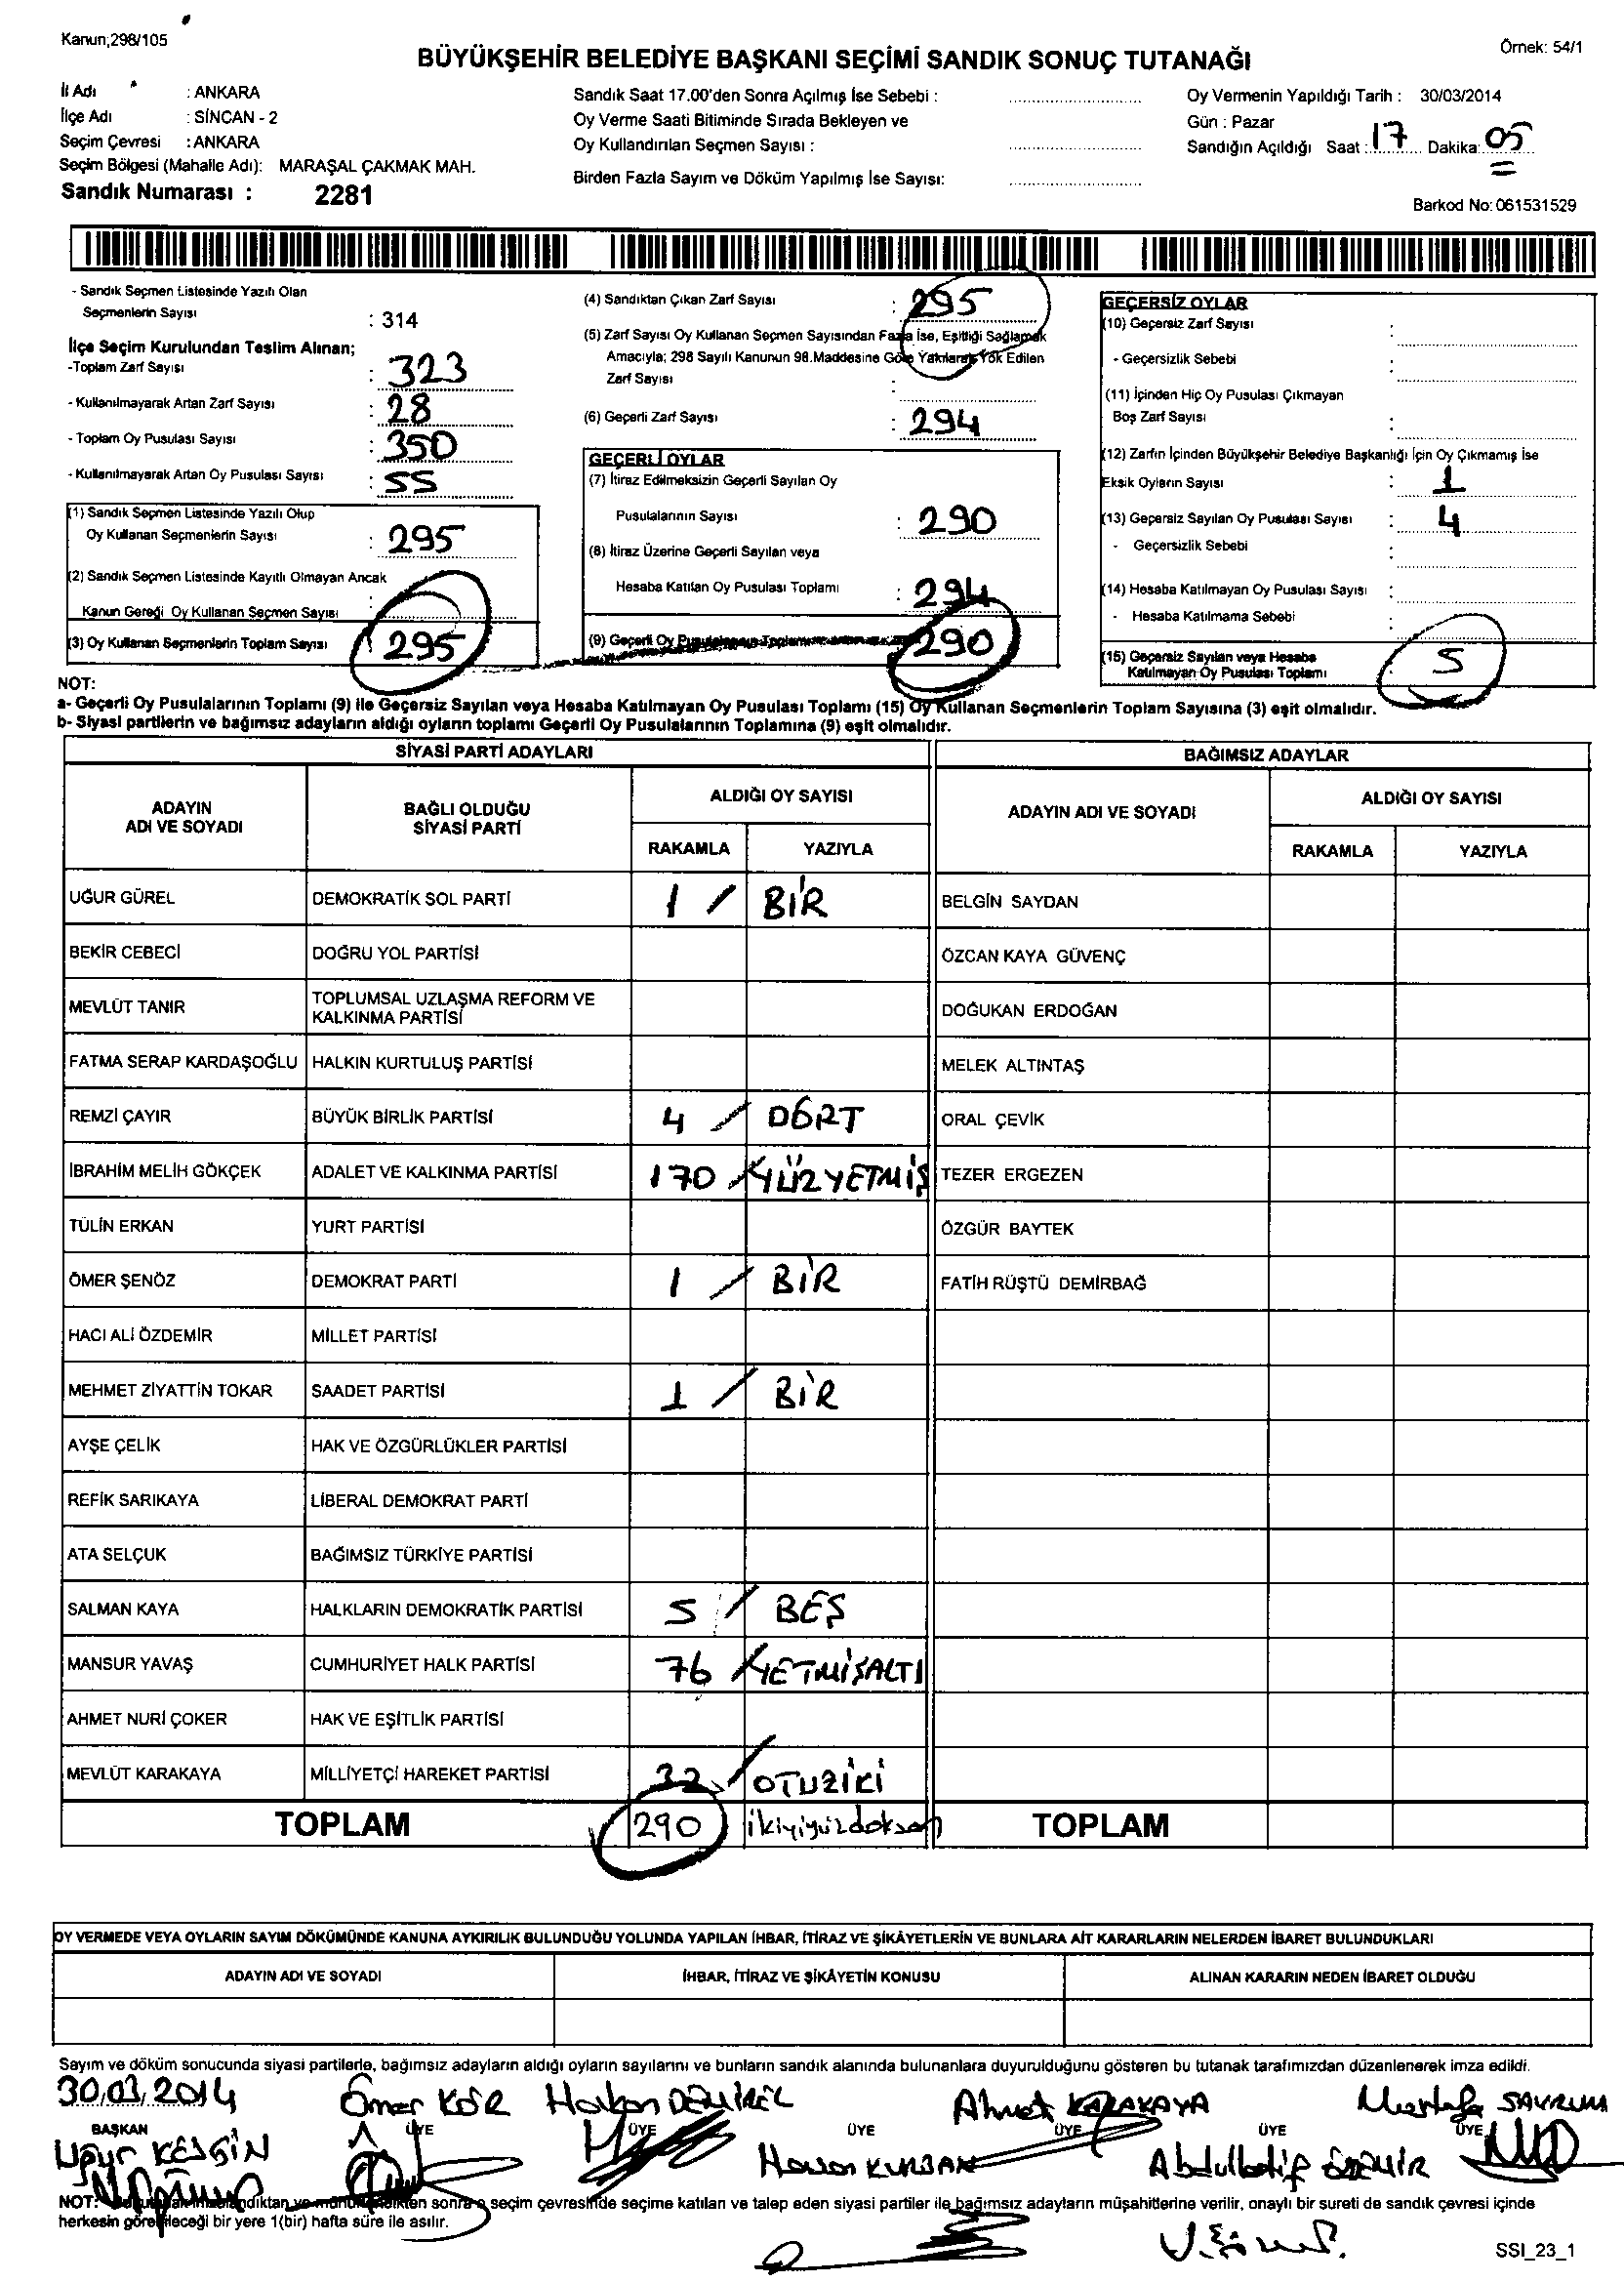 Kanun;298/105
Örnek: 54/1
BÜYÜKŞEHİR BELEDİYE BAŞKANI SEÇİMİ SANDIK SONUÇ TUTANAĞI
İl Adı : ANKARA
İlçe Adı : SİNCAN - 2
Seçim Çevresi : ANKARA
Seçim Bölgesi (Mahalle Adı): MARAŞAL ÇAKMAK MAH.
Sandık Numarası : 2281
Sandık Saat 17.00'den Sonra Açılmış İse Sebebi :
Oy Verme Saati Bitiminde Sırada Bekleyen ve
Oy Kullandırılan Seçmen Sayısı :
Birden Fazla Sayım ve Döküm Yapılmış İse Sayısı:
Oy Vermenin Yapıldığı Tarih : 30/03/2014
Gün : Pazar
Sandığın Açıldığı Saat : 17 Dakika: 05
Barkod No: 061531529
- Sandık Seçmen Listesinde Yazılı Olan
Seçmenlerin Sayısı : 314
İlçe Seçim Kurulundan Teslim Alınan;
-Toplam Zarf Sayısı : 323
- Kullanılmayarak Artan Zarf Sayısı : 28
- Toplam Oy Pusulası Sayısı : 350
- Kullanılmayarak Artan Oy Pusulası Sayısı : 55
(1) Sandık Seçmen Listesinde Yazılı Olup
Oy Kullanan Seçmenlerin Sayısı : 295
(2) Sandık Seçmen Listesinde Kayıtlı Olmayan Ancak
Kanun Gereği Oy Kullanan Seçmen Sayısı :
(3) Oy Kullanan Seçmenlerin Toplam Sayısı 295
(4) Sandıktan Çıkan Zarf Sayısı : 295
(5) Zarf Sayısı Oy Kullanan Seçmen Sayısından Fazla İse, Eşitliği Sağlamak
Amacıyla; 298 Sayılı Kanunun 98.Maddesine Göre Yakılarak Yok Edilen
Zarf Sayısı :
(6) Geçerli Zarf Sayısı : 294
GEÇERLİ OYLAR
(7) İtiraz Edilmeksizin Geçerli Sayılan Oy
Pusulalarının Sayısı : 290
(8) İtiraz Üzerine Geçerli Sayılan veya
Hesaba Katılan Oy Pusulası Toplamı : 294
(9) Geçerli Oy Pusulalarının Toplamı 290
GEÇERSİZ OYLAR
(10) Geçersiz Zarf Sayısı :
- Geçersizlik Sebebi :
(11) İçinden Hiç Oy Pusulası Çıkmayan
Boş Zarf Sayısı :
(12) Zarfın İçinden Büyükşehir Belediye Başkanlığı İçin Oy Çıkmamış İse
Eksik Oyların Sayısı : 1
(13) Geçersiz Sayılan Oy Pusulası Sayısı : 4
- Geçersizlik Sebebi :
(14) Hesaba Katılmayan Oy Pusulası Sayısı :
- Hesaba Katılmama Sebebi :
(15) Geçersiz Sayılan veya Hesaba
Katılmayan Oy Pusulası Toplamı : 5
NOT:
a- Geçerli Oy Pusulalarının Toplamı (9) ile Geçersiz Sayılan veya Hesaba Katılmayan Oy Pusulası Toplamı (15) Oy Kullanan Seçmenlerin Toplam Sayısına (3) eşit olmalıdır.
b- Siyasi partilerin ve bağımsız adayların aldığı oyların toplamı Geçerli Oy Pusulalarının Toplamına (9) eşit olmalıdır.
SİYASİ PARTİ ADAYLARI BAĞIMSIZ ADAYLAR
ADAYIN ADI VE SOYADI BAĞLI OLDUĞU SİYASİ PARTİ ALDIĞI OY SAYISI ADAYIN ADI VE SOYADI ALDIĞI OY SAYISI
RAKAMLA YAZIYLA RAKAMLA YAZIYLA
UĞUR GÜREL DEMOKRATİK SOL PARTİ 1 / BİR BELGİN SAYDAN
BEKİR CEBECİ DOĞRU YOL PARTİSİ ÖZCAN KAYA GÜVENÇ
MEVLÜT TANIR TOPLUMSAL UZLAŞMA REFORM VE KALKINMA PARTİSİ DOĞUKAN ERDOĞAN
FATMA SERAP KARDAŞOĞLU HALKIN KURTULUŞ PARTİSİ MELEK ALTINTAŞ
REMZİ ÇAYIR BÜYÜK BİRLİK PARTİSİ 4 / DÖRT ORAL ÇEVİK
İBRAHİM MELİH GÖKÇEK ADALET VE KALKINMA PARTİSİ 170 / YÜZYETMİŞ TEZER ERGEZEN
TÜLİN ERKAN YURT PARTİSİ ÖZGÜR BAYTEK
ÖMER ŞENÖZ DEMOKRAT PARTİ 1 / BİR FATİH RÜŞTÜ DEMİRBAĞ
HACI ALİ ÖZDEMİR MİLLET PARTİSİ
MEHMET ZİYATTİN TOKAR SAADET PARTİSİ 1 / BİR
AYŞE ÇELİK HAK VE ÖZGÜRLÜKLER PARTİSİ
REFİK SARIKAYA LİBERAL DEMOKRAT PARTİ
ATA SELÇUK BAĞIMSIZ TÜRKİYE PARTİSİ
SALMAN KAYA HALKLARIN DEMOKRATİK PARTİSİ 5 / BEŞ
MANSUR YAVAŞ CUMHURİYET HALK PARTİSİ 76 / YETMİŞALTI
AHMET NURİ ÇOKER HAK VE EŞİTLİK PARTİSİ
MEVLÜT KARAKAYA MİLLİYETÇİ HAREKET PARTİSİ 32 / OTUZİKİ
TOPLAM 290 ikiyiyüzdoksan TOPLAM
OY VERMEDE VEYA OYLARIN SAYIM DÖKÜMÜNDE KANUNA AYKIRILIK BULUNDUĞU YOLUNDA YAPILAN İHBAR, İTİRAZ VE ŞİKÂYETLERİN VE BUNLARA AİT KARARLARIN NELERDEN İBARET BULUNDUKLARI
ADAYIN ADI VE SOYADI İHBAR, İTİRAZ VE ŞİKÂYETİN KONUSU ALINAN KARARIN NEDEN İBARET OLDUĞU
Sayım ve döküm sonucunda siyasi partilerle, bağımsız adayların aldığı oyların sayılarını ve bunların sandık alanında bulunanlara duyurulduğunu gösteren bu tutanak tarafımızdan düzenlenerek imza edildi.
30.03.2014 Ömer KÖR Hakan DEMİREL Ahmet KARAKAYA Mustafa SAVRUM
BAŞKAN ÜYE ÜYE ÜYE ÜYE ÜYE ÜYE
Uğur KESGİN Hasan KURBAN Abdullatif ÖZDEMİR
NOT: sonra seçim çevresinde seçime katılan ve talep eden siyasi partiler ile bağımsız adayların müşahitlerine verilir, onaylı bir sureti de sandık çevresi içinde
herkesin görebileceği bir yere 1(bir) hafta süre ile asılır.
SSI_23_1